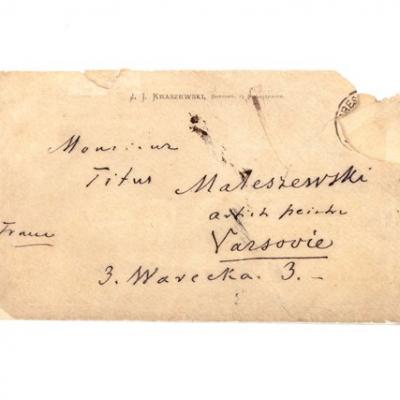 J. I. KRASZEWSKI,
Monsieur
Titus Maleszewski
artiste peintre
Varsovie
Franco
3. Warecka. 3. –